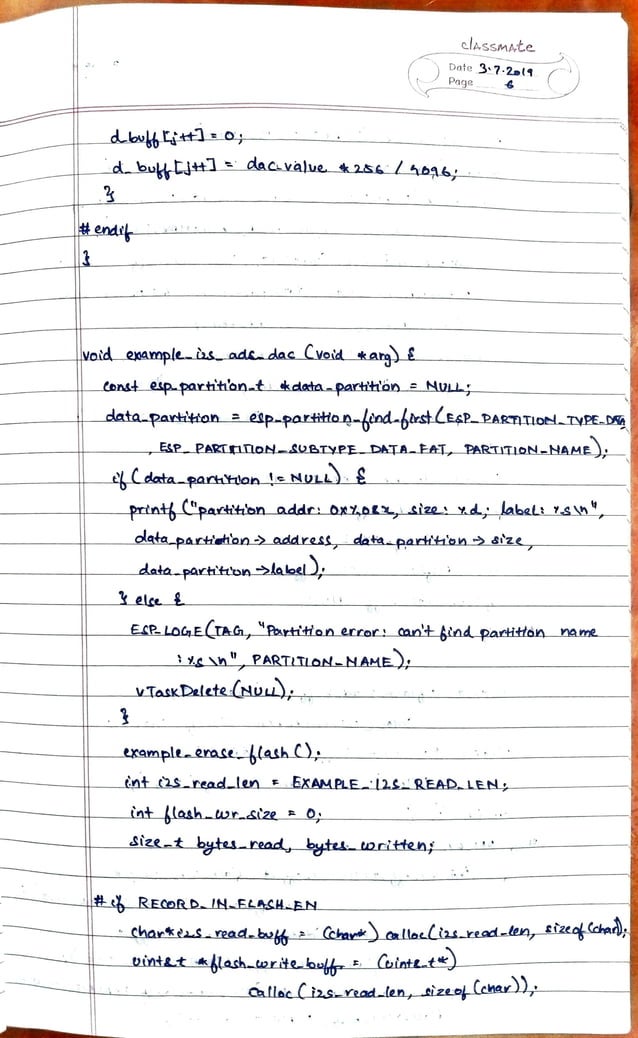 classmate
Date 3.7.2019
Page 6
d_buff[j++] = 0;
d_buff[j++] = dac_value * 256 / 4096;
}
#endif
}
void example_i2s_adc_dac (void *arg) {
const esp_partition_t *data_partition = NULL;
data_partition = esp_partition_find_first(ESP_PARTITION_TYPE_DATA
, ESP_PARTITION_SUBTYPE_DATA_FAT, PARTITION_NAME);
if (data_partition != NULL) {
printf ("partition addr: 0x%08x, size: %d; label: %s\n",
data_partition -> address, data_partition -> size,
data_partition -> label);
} else {
ESP_LOGE(TAG, "Partition error: can't find partition name
: %s \n", PARTITION_NAME);
vTaskDelete (NULL);
}
example_erase_flash();
int i2s_read_len = EXAMPLE_I2S_READ_LEN;
int flash_wr_size = 0;
size_t bytes_read, bytes_written;
#if RECORD_IN_FLASH_EN
char* i2s_read_buff = (char*) calloc(i2s_read_len, sizeof(char));
uint8_t *flash_write_buff = (uint8_t*)
calloc (i2s_read_len, sizeof (char));